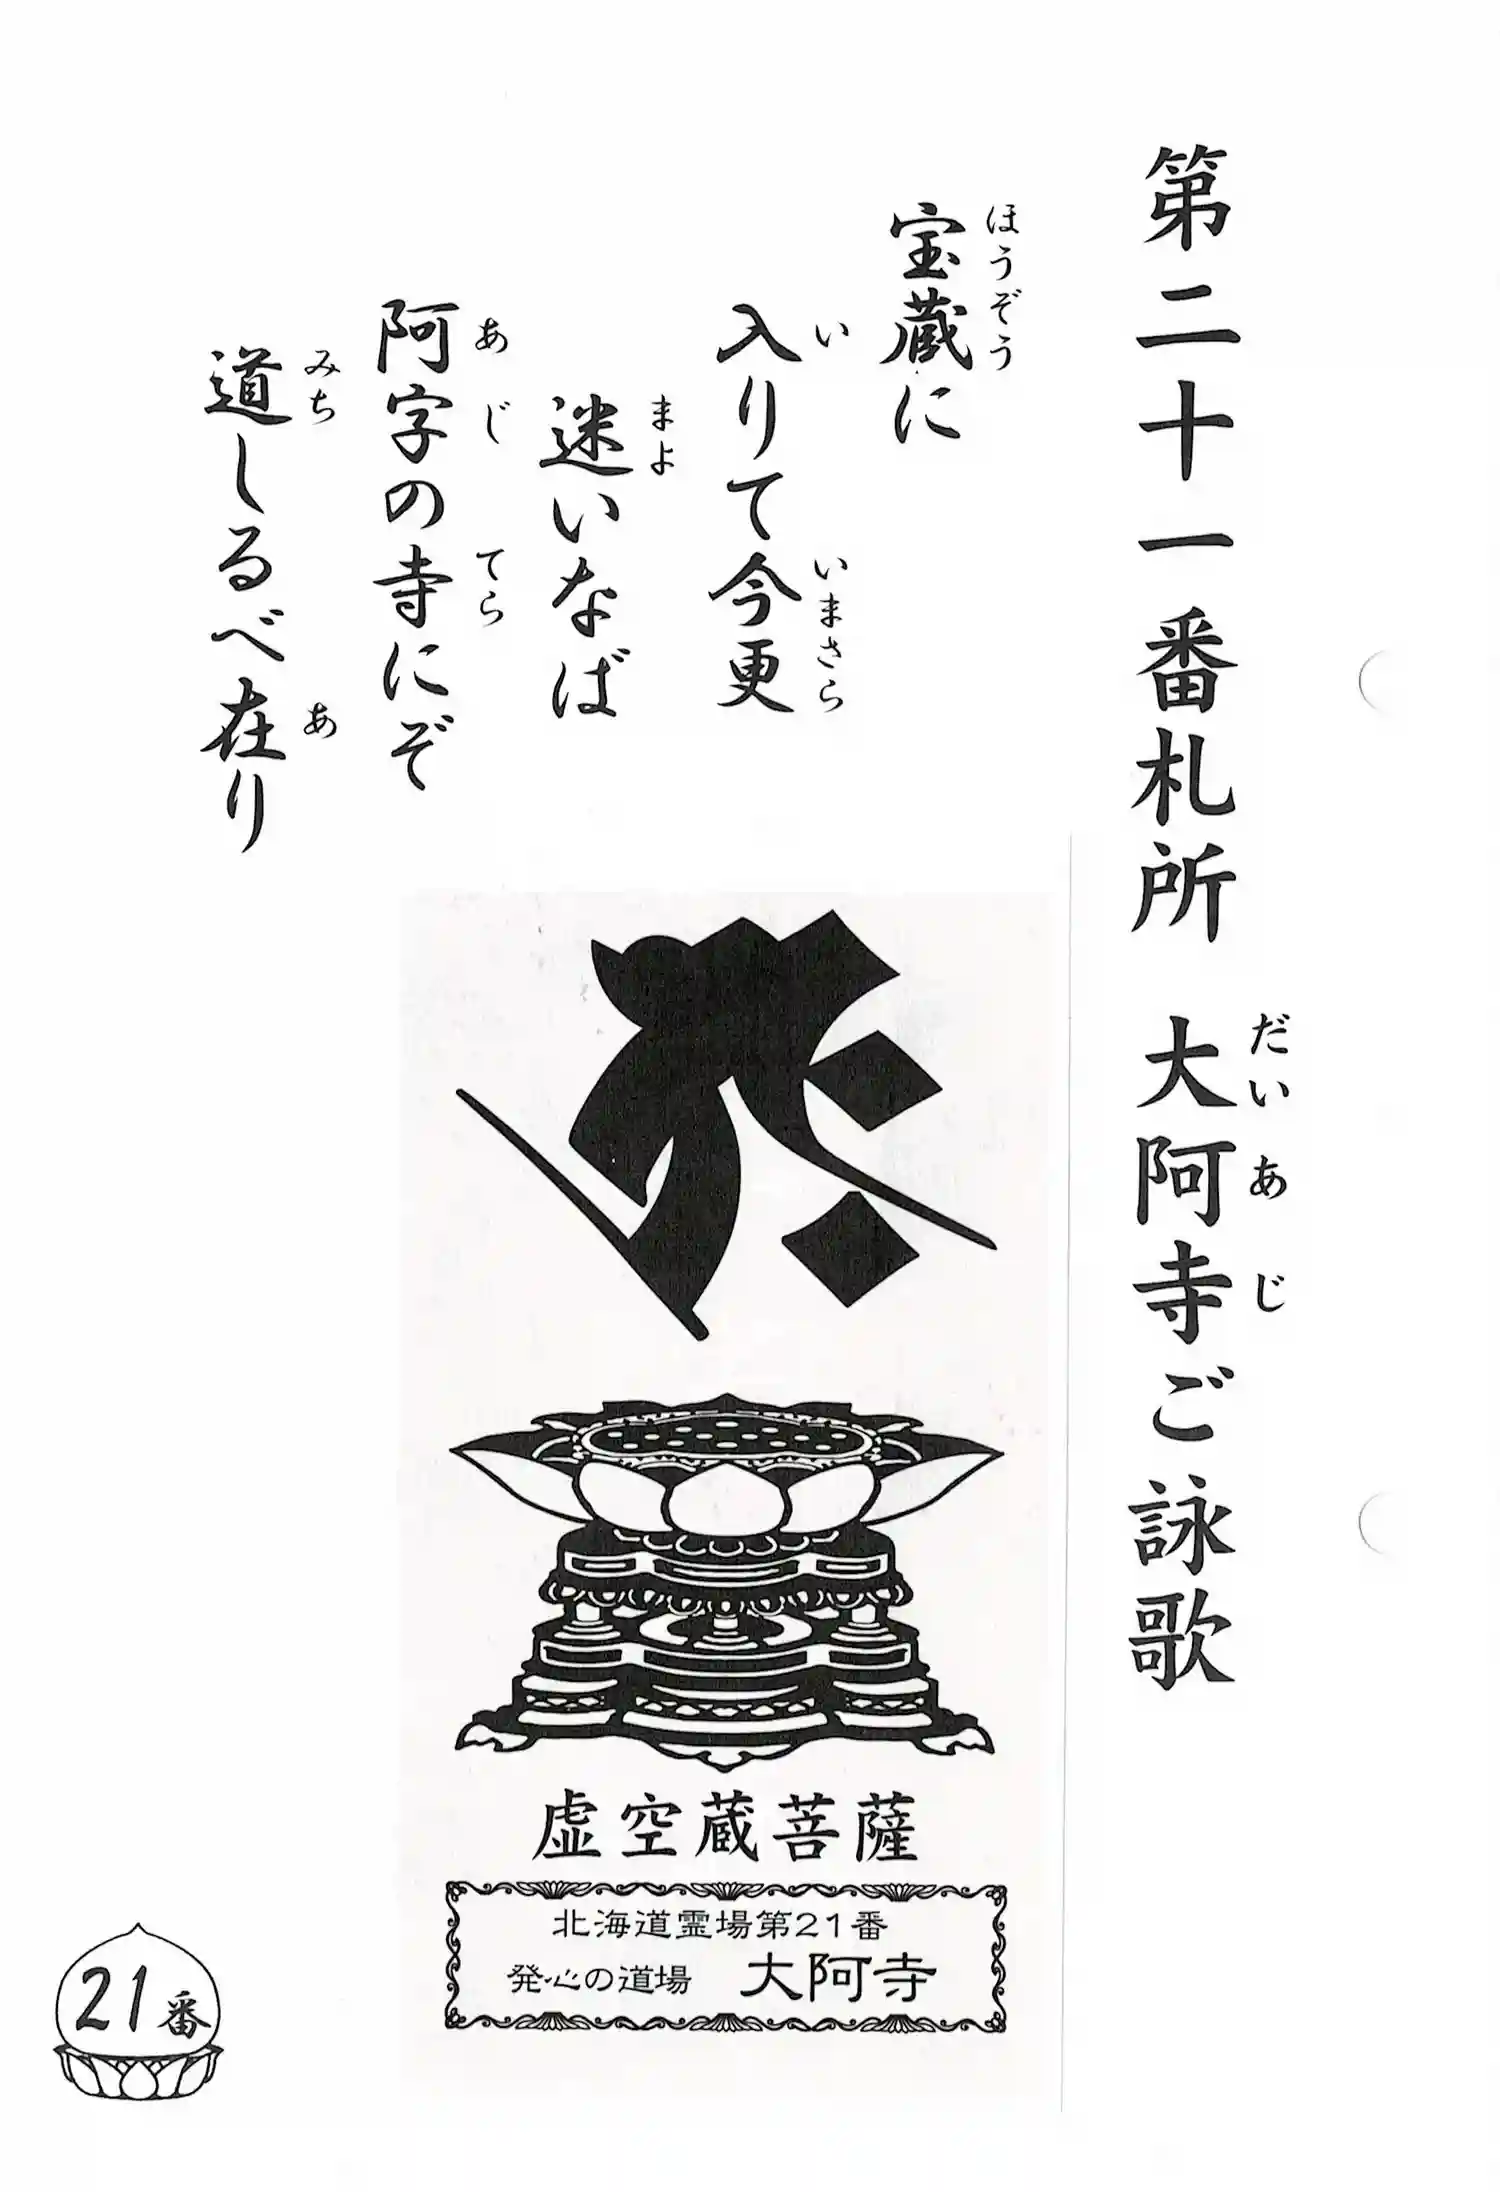 第二十一番札所　大阿寺ご詠歌
だいあじ
宝蔵に
ほうぞう
入りて今更
い　いまさら
迷いなば
まよ
阿字の寺にぞ
あじ　てら
道しるべ在り
みち　あ
虚空蔵菩薩
北海道霊場第21番
発心の道場　大阿寺
21番